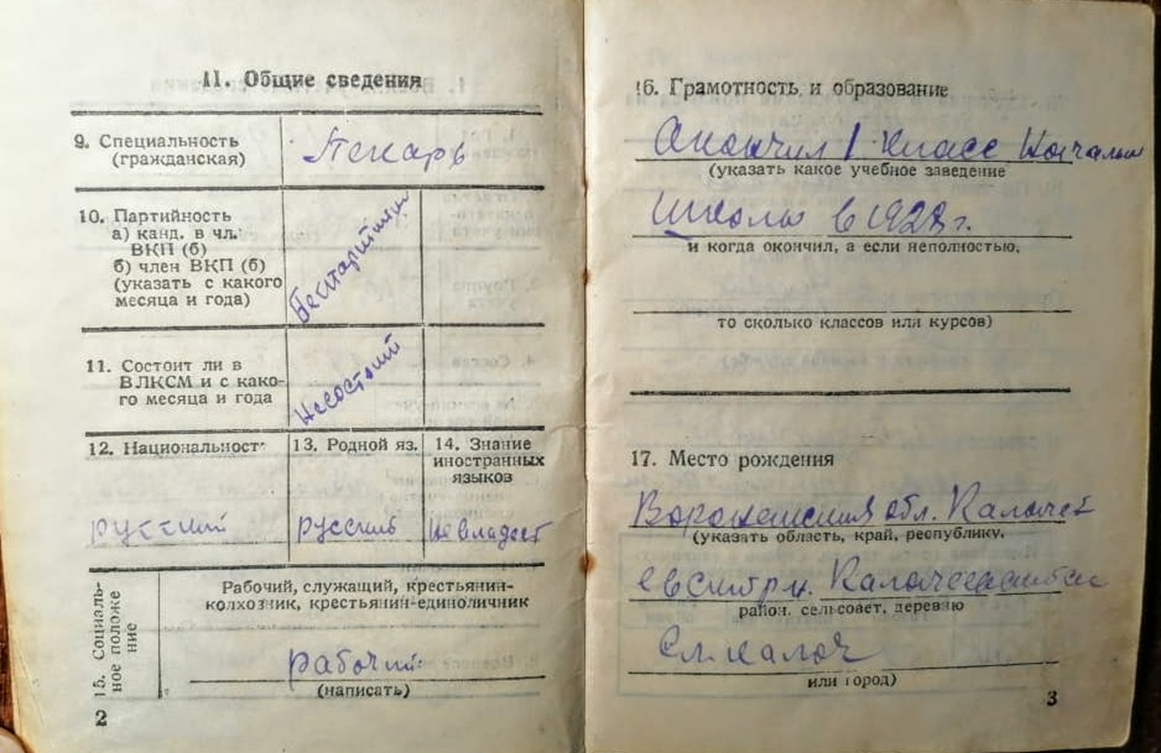 11. Общие сведения
9. Специальность
(гражданская)
Пекарь
10. Партийность
а) канд. в чл.
ВКП (б)
б) член ВКП (б)
(указать с какого
месяца и года)
Беспартийный
11. Состоит ли в
ВЛКСМ и с како-
го месяца и года
Несостоит
12. Национальност
русский
13. Родной яз.
русский
14. Знание
иностранных
языков
не владеет
15. Социаль-
ное положе
ние
Рабочий, служащий, крестьянин-
колхозник, крестьянин-единоличник
рабочий
(написать)
2
16. Грамотность и образование
Окончил 1 класс Начальн
(указать какое учебное заведение
школы в 1928 г.
и когда окончил, а если неполностью,
то сколько классов или курсов)
17. Место рождения
Воронежская обл. Калаче
(указать область, край, республику,
евский р н.
район, сельсовет, деревню
Калач
или город)
3